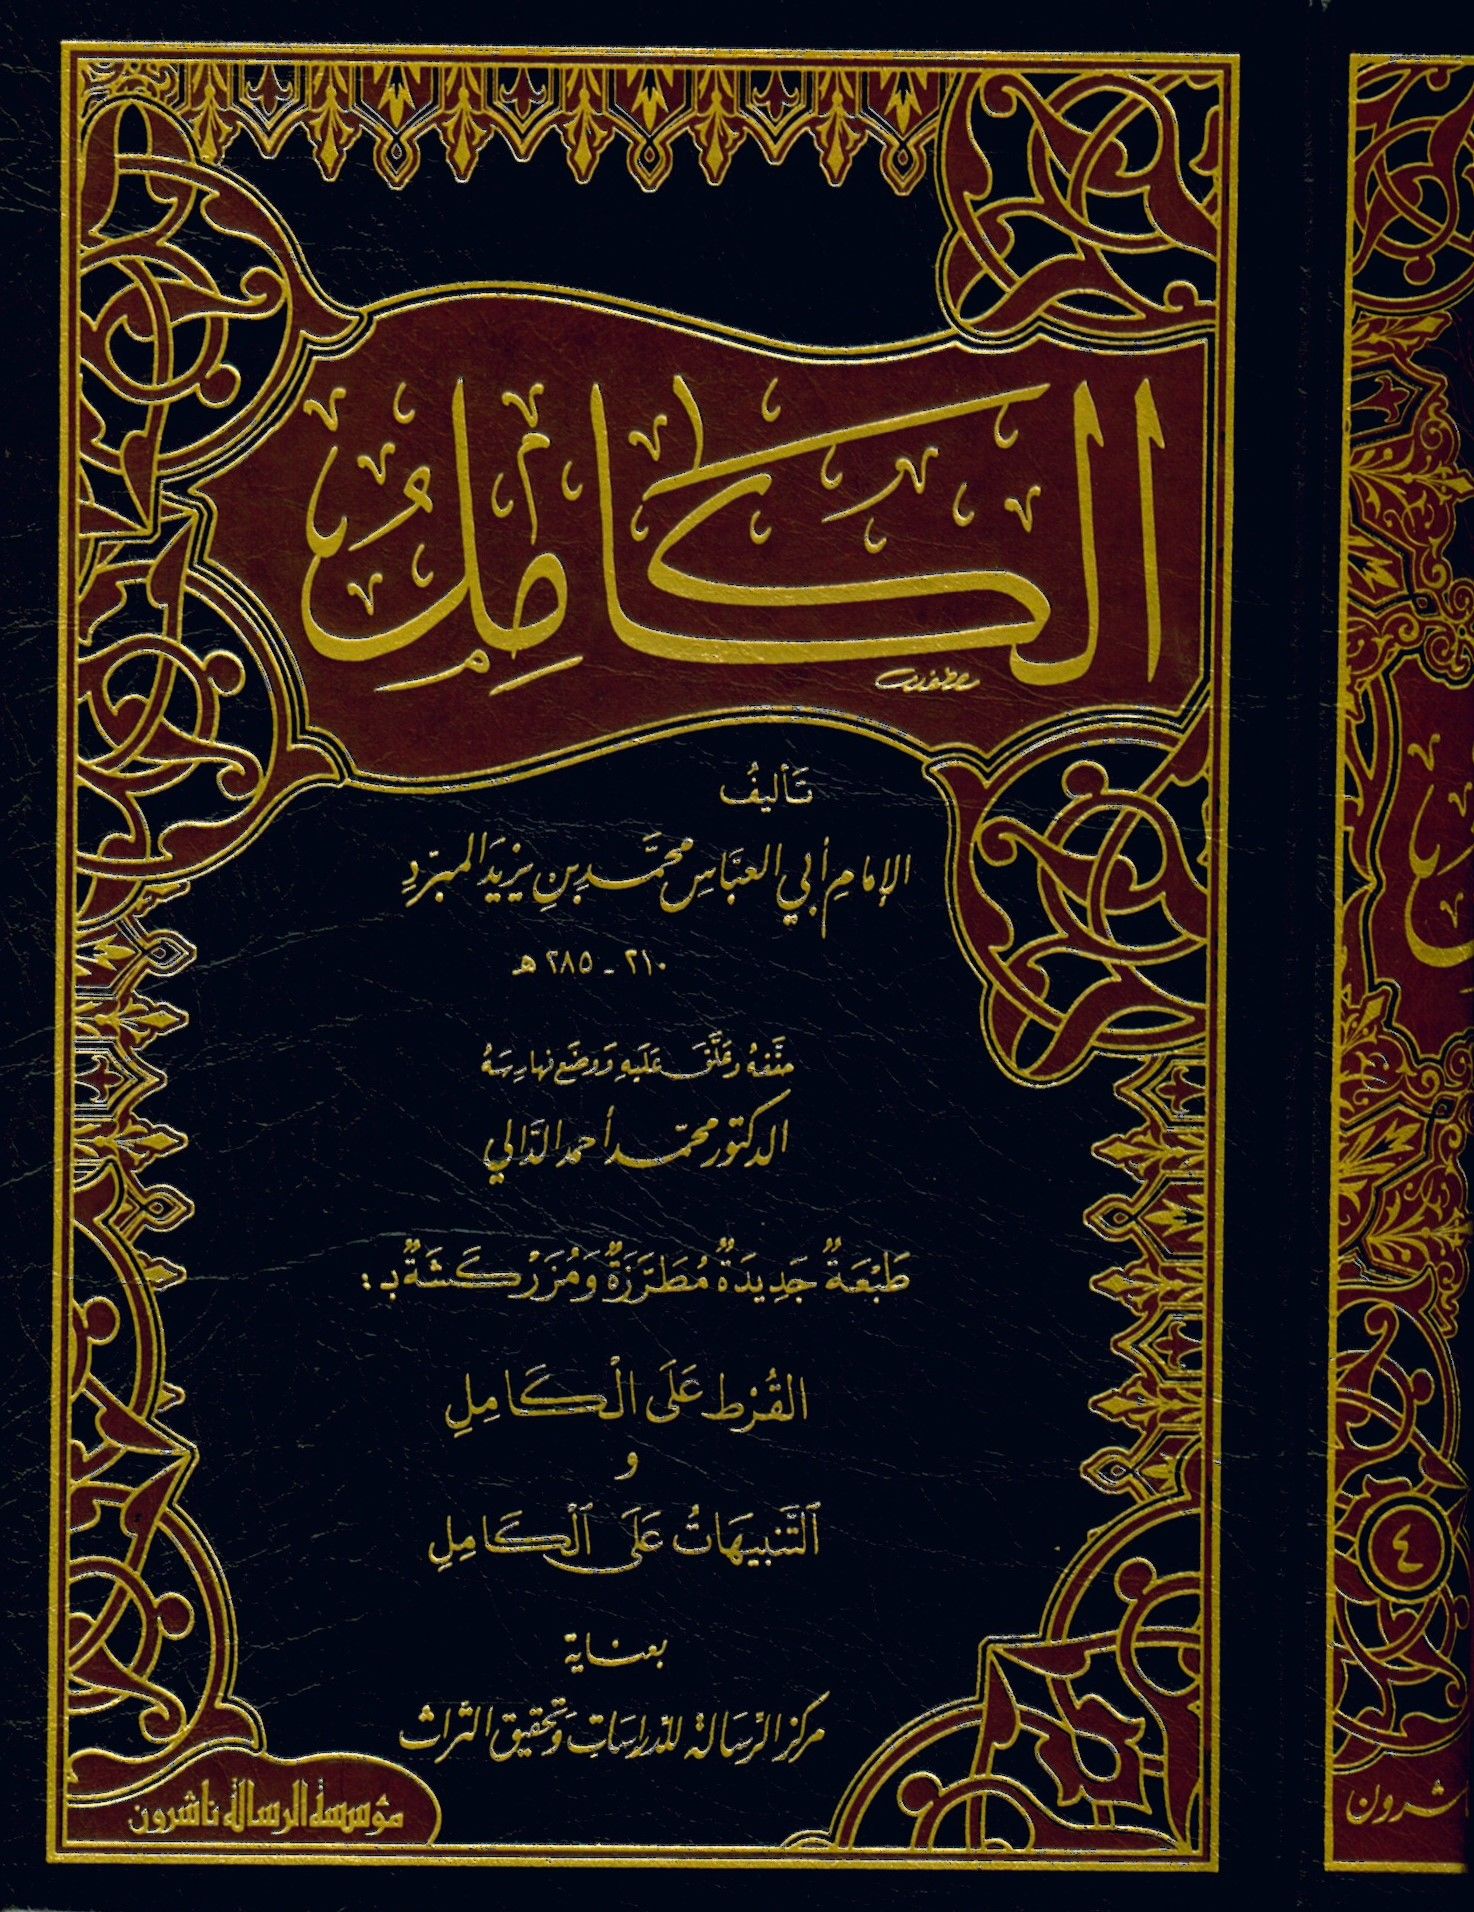 الكَامِلُ
تَأليفُ
الإمامِ أبي العبَّاسِ محمَّد بنِ يزيدَ المبرّدِ
٢١٠ - ٢٨٥ هـ
حقَّقهُ وعَلَّقَ عَلَيهِ وَوضَع فهارِسَهُ
الدكتور محمّد أحمد الدَّالي
طَبْعَةٌ جَدِيدَةٌ مُطَرَّزَةٌ وَمُزَرْكَشَةٌ بـ :
القُرْط عَلَى الْكَامِلِ
و
ٱلتَّنبِيهَاتُ عَلَى ٱلْكَامِلِ
بعناية
مركز الرِّسَالة للدِّراسَاتِ وَتحقيق التراث
مؤسسة الرسالة ناشرون
٤
شرون